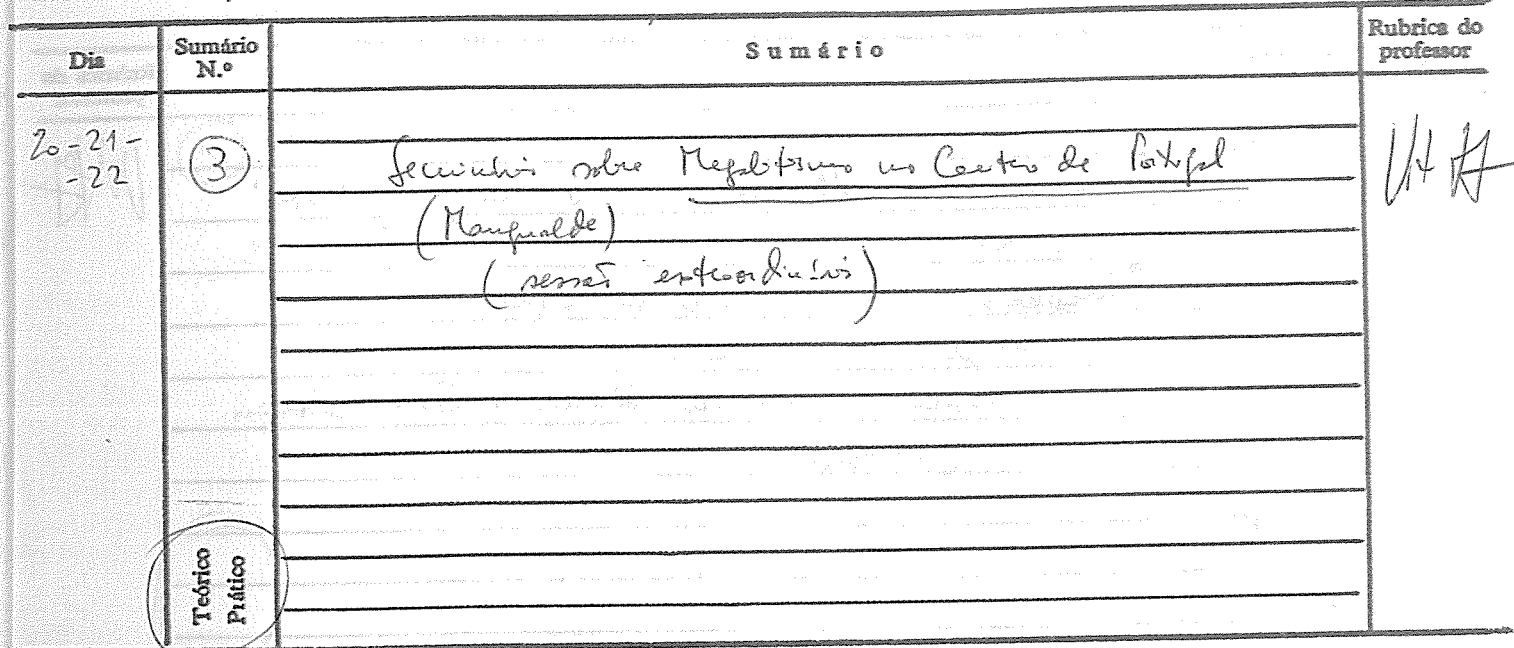 Dia
Sumário N.º
Sumário
Rubrica do professor
20-21-
-22
3
Seminário sobre Megalitismo no Centro de Portugal
(Mangualde)
(sessão extraordinária)
Teórico
Prático